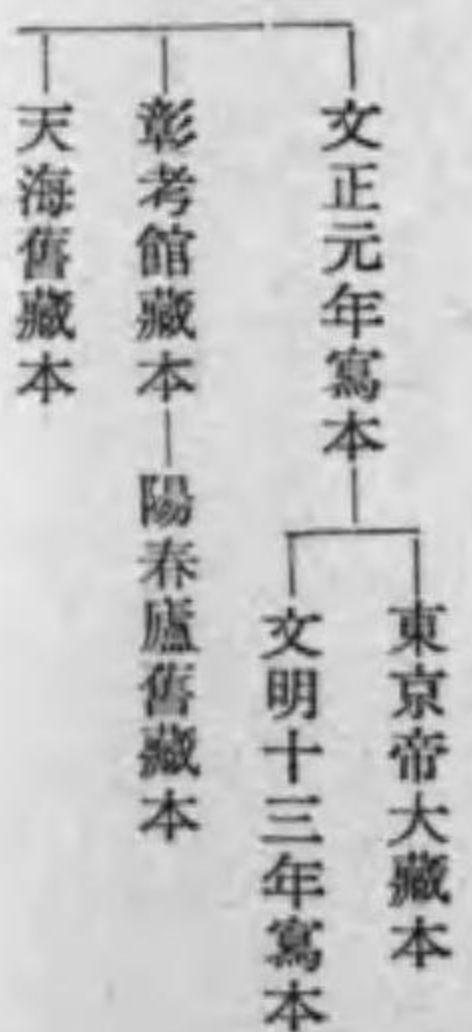 文正元年寫本
東京帝大藏本
文明十三年寫本
彰考館藏本
陽春廬舊藏本
天海舊藏本